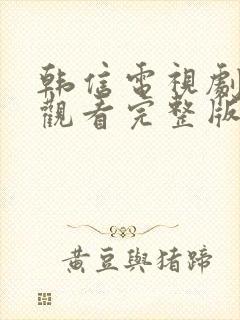 韩信電視劇
觀看完整版
黃豆與猪蹄